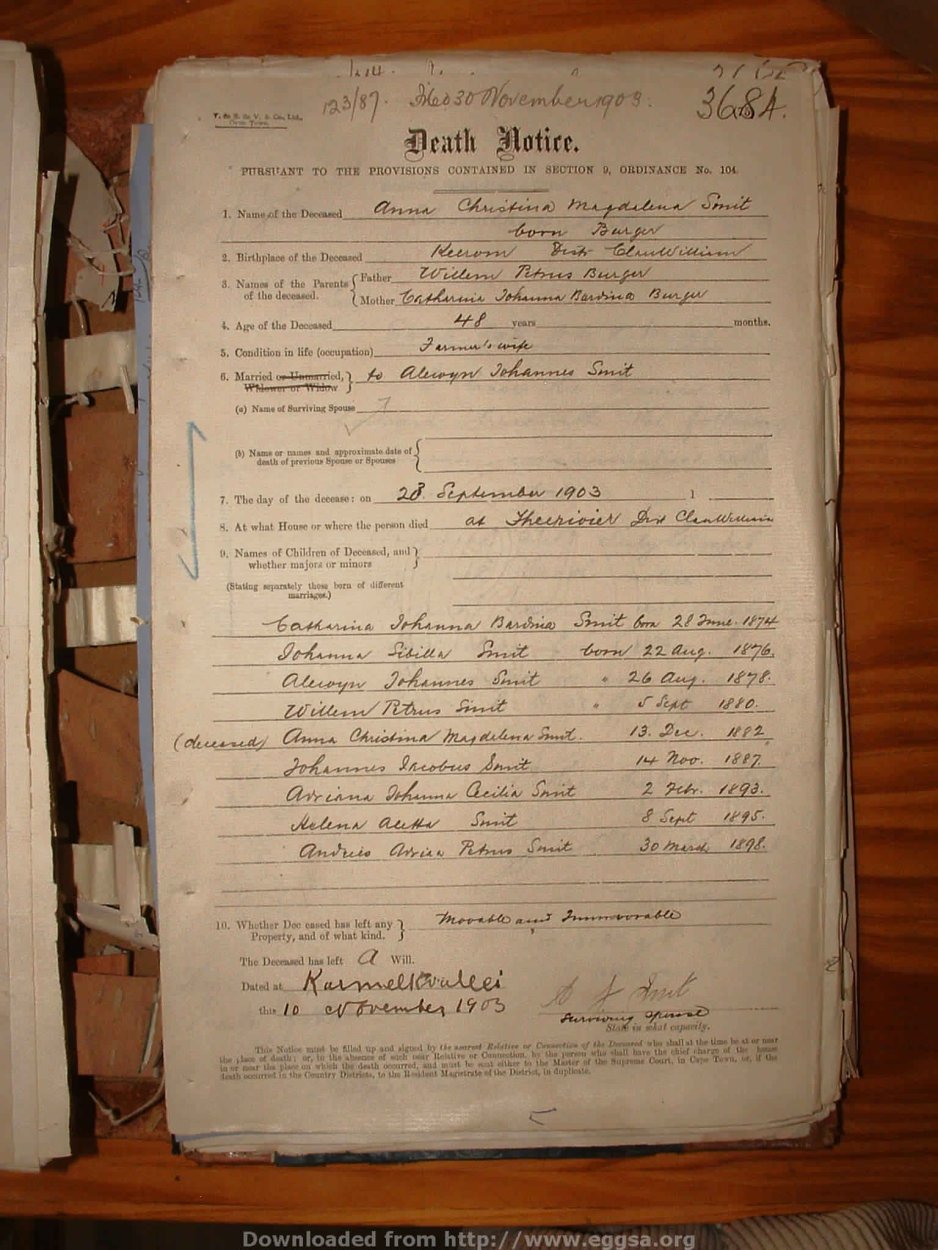 123/87. Filed 30 November 1903. 3684.
T. & S. & V. & Co., Ltd.,
Cape Town.
Death Notice.
PURSUANT TO THE PROVISIONS CONTAINED IN SECTION 9, ORDINANCE No. 104.
1. Name of the Deceased Anna Christina Magdalena Smit
born Burger
2. Birthplace of the Deceased Keerom Dist ClanWilliam
3. Names of the Parents of the deceased. { Father Willem Petrus Burger
Mother Catharina Johanna Bardina Burger
4. Age of the Deceased 48 years months.
5. Condition in life (occupation) Farmer's wife
6. Married or Unmarried, Widower or Widow } to Alewyn Johannes Smit
(a) Name of Surviving Spouse
(b) Name or names and approximate date of
death of previous Spouse or Spouses {
7. The day of the decease: on 28 September 1903 1
8. At what House or where the person died at Theerivier Dist ClanWilliam
9. Names of Children of Deceased, and }
whether majors or minors
(Stating separately those born of different
marriages.)
Catharina Johanna Bardina Smit born 28 June 1874
Johanna Sibilla Smit born 22 Aug. 1876.
Alewyn Johannes Smit " 26 Aug. 1878.
Willem Petrus Smit " 5 Sept 1880.
(deceased) Anna Christina Magdalena Smit. 13. Dec. 1882
Johannes Jacobus Smit 14 Nov. 1887.
Adriana Johanna Cecilia Smit 2 Febr. 1893.
Helena Aletta Smit 8 Sept 1895.
Andries Adriaa Petrus Smit 30 March 1898.
10. Whether Deceased has left any } Movable and Immovorable
Property, and of what kind.
The Deceased has left A Will.
Dated at Karmelksvallei
this 10 November 1903 Smit
Surviving Spouse
State in what capacity.
This Notice must be filled up and signed by the nearest Relative or Connection of the Deceased who shall at the time be at or near
the place of death; or, in the absence of such near Relative or Connection, by the person who shall have the chief charge of the house
in or near the place on which the death occurred, and must be sent either to the Master of the Supreme Court, in Cape Town, or, if the
death occurred in the Country Districts, to the Resident Magistrate of the District, in duplicate.
Downloaded from http://www.eggsa.org